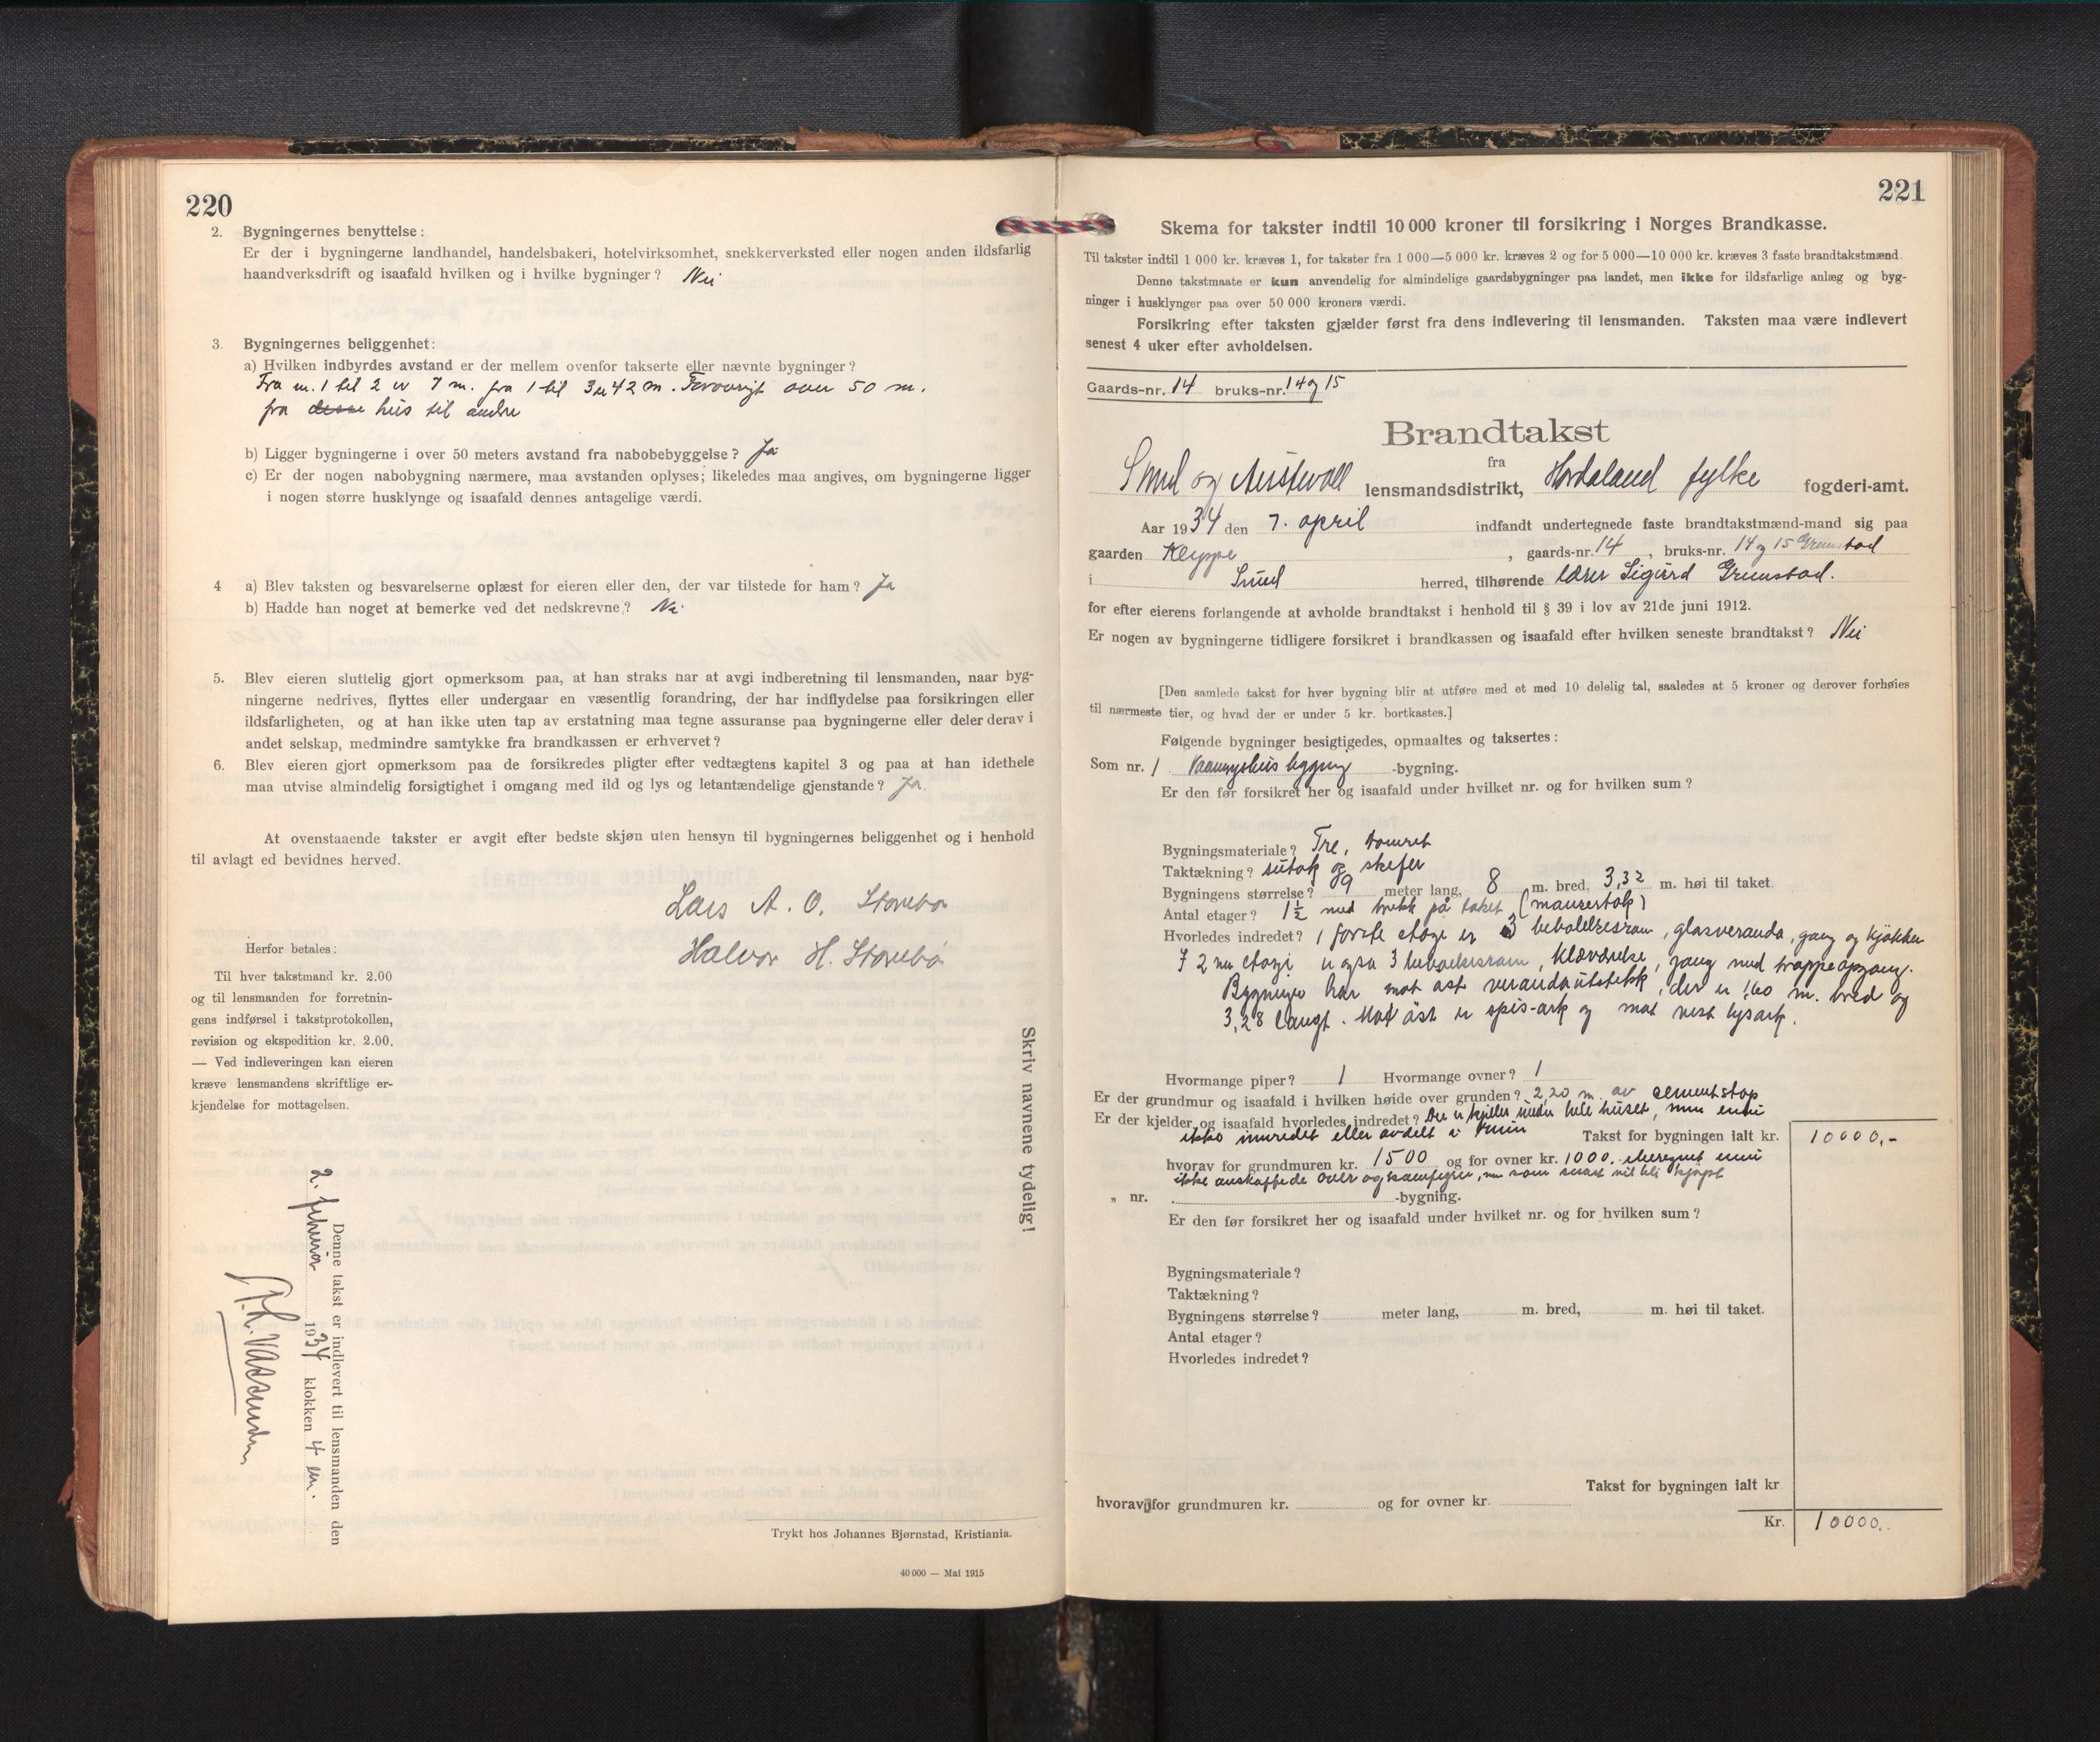 220
2. Bygningernes benyttelse:
Er der i bygningerne landhandel, handelsbakeri, hotelvirksomhet, snekkerverksted eller nogen anden ildsfarlig
haandverksdrift og isaafald hvilken og i hvilke bygninger? Nei
3. Bygningernes beliggenhet:
a) Hvilken indbyrdes avstand er der mellem ovenfor takserte eller nævnte bygninger?
Fra nr. 1 til 2 er 7 m. fra 1 til 3 er 42 m. Forøvrigt over 50 m.
fra desse hus til andre
b) Ligger bygningerne i over 50 meters avstand fra nabobebyggelse? Ja
c) Er der nogen nabobygning nærmere, maa avstanden oplyses; likeledes maa angives, om bygningerne ligger
i nogen større husklynge og isaafald dennes antagelige værdi.
4 a) Blev taksten og besvarelserne oplæst for eieren eller den, der var tilstede for ham? Ja
b) Hadde han noget at bemerke ved det nedskrevne? Nei
5. Blev eieren sluttelig gjort opmerksom paa, at han straks har at avgi indberetning til lensmanden, naar byg-
ningerne nedrives, flyttes eller undergaar en væsentlig forandring, der har indflydelse paa forsikringen eller
ildsfarligheten, og at han ikke uten tap av erstatning maa tegne assuranse paa bygningerne eller deler derav i
andet selskap, medmindre samtykke fra brandkassen er erhvervet?
6. Blev eieren gjort opmerksom paa de forsikredes pligter efter vedtægtens kapitel 3 og paa at han idethele
maa utvise almindelig forsigtighet i omgang med ild og lys og letantændelige gjenstande? Ja.
At ovenstaaende takster er avgit efter bedste skjøn uten hensyn til bygningernes beliggenhet og i henhold
til avlagt ed bevidnes herved.
Lars A. O. Storebø
Halvor H. Storebø
Herfor betales:
Til hver takstmand kr. 2.00
og til lensmanden for forretnin-
gens indførsel i takstprotokollen,
revision og ekspedition kr. 2.00.
— Ved indleveringen kan eieren
kræve lensmandens skriftlige er-
kjendelse for mottagelsen.
Skriv navnene tydelig!
Denne takst er indlevert til lensmanden den
2. februar 1934 klokken 4 em.
Trykt hos Johannes Bjørnstad, Kristiania.
40 000 — Mai 1915
221
Skema for takster indtil 10 000 kroner til forsikring i Norges Brandkasse.
Til takster indtil 1 000 kr. kræves 1, for takster fra 1 000—5 000 kr. kræves 2 og for 5 000—10 000 kr. kræves 3 faste brandtakstmænd.
Denne takstmaate er kun anvendelig for almindelige gaardsbygninger paa landet, men ikke for ildsfarlige anlæg og byg-
ninger i husklynger paa over 50 000 kroners værdi.
Forsikring efter taksten gjælder først fra dens indlevering til lensmanden. Taksten maa være indlevert
senest 4 uker efter avholdelsen.
Gaards-nr. 14 bruks-nr. 14 og 15
Brandtakst
fra
Sund og Austevoll lensmandsdistrikt, Hordaland fylke fogderi-amt.
Aar 1934 den 7. april indfandt undertegnede faste brandtakstmænd-mand sig paa
gaarden Kleppe, gaards-nr. 14, bruks-nr. 14 og 15 Grunstad
i Sund herred, tilhørende lærer Sigurd Grunstad.
for efter eierens forlangende at avholde brandtakst i henhold til § 39 i lov av 21de juni 1912.
Er nogen av bygningerne tidligere forsikret i brandkassen og isaafald efter hvilken seneste brandtakst? Nei
[Den samlede takst for hver bygning blir at utføre med et med 10 delelig tal, saaledes at 5 kroner og derover forhøies
til nærmeste tier, og hvad der er under 5 kr. bortkastes.]
Følgende bygninger besigtigedes, opmaaltes og taksertes:
Som nr. 1 Vaaningshus bygging -bygning.
Er den før forsikret her og isaafald under hvilket nr. og for hvilken sum?
Bygningsmateriale? Tre, tømret
Taktækning? sutak og skifer
Bygningens størrelse? 9 meter lang, 8 m. bred, 3,32 m. høi til taket.
Antal etager? 1½ med brekk på taket (maurertak)
Hvorledes indredet? I første etage er 3 beboelsesrom, glasveranda, gang og kjøkken
I 2nen etagi er også 3 beboelsesrom, klæværelse, gang med trappeopgang.
Bygningen har mot ost verandautstikk, der er 1,60 m. bred og
3,28 langt. Mot ost er spis-ark og mot vest lysark.
Hvormange piper? 1 Hvormange ovner? 1
Er der grundmur og isaafald i hvilken høide over grunden? 2,20 m. av cementstøp
Er der kjelder og isaafald hvorledes indredet? Der er kjeller under hele huset, men enni
ikke innredet eller avdelt i rum
Takst for bygningen ialt kr. 10000,-
hvorav for grundmuren kr. 1500 og for ovner kr. 1000. iberegnet enni
ikke anskaffede over og kamfyrer, som snart vil bli kjøpt
„ nr. -bygning.
Er den før forsikret her og isaafald under hvilket nr. og for hvilken sum?
Bygningsmateriale?
Taktækning?
Bygningens størrelse? meter lang, m. bred, m. høi til taket.
Antal etager?
Hvorledes indredet?
Takst for bygningen ialt kr
hvorav for grundmuren kr. og for ovner kr.
Kr. 10000.